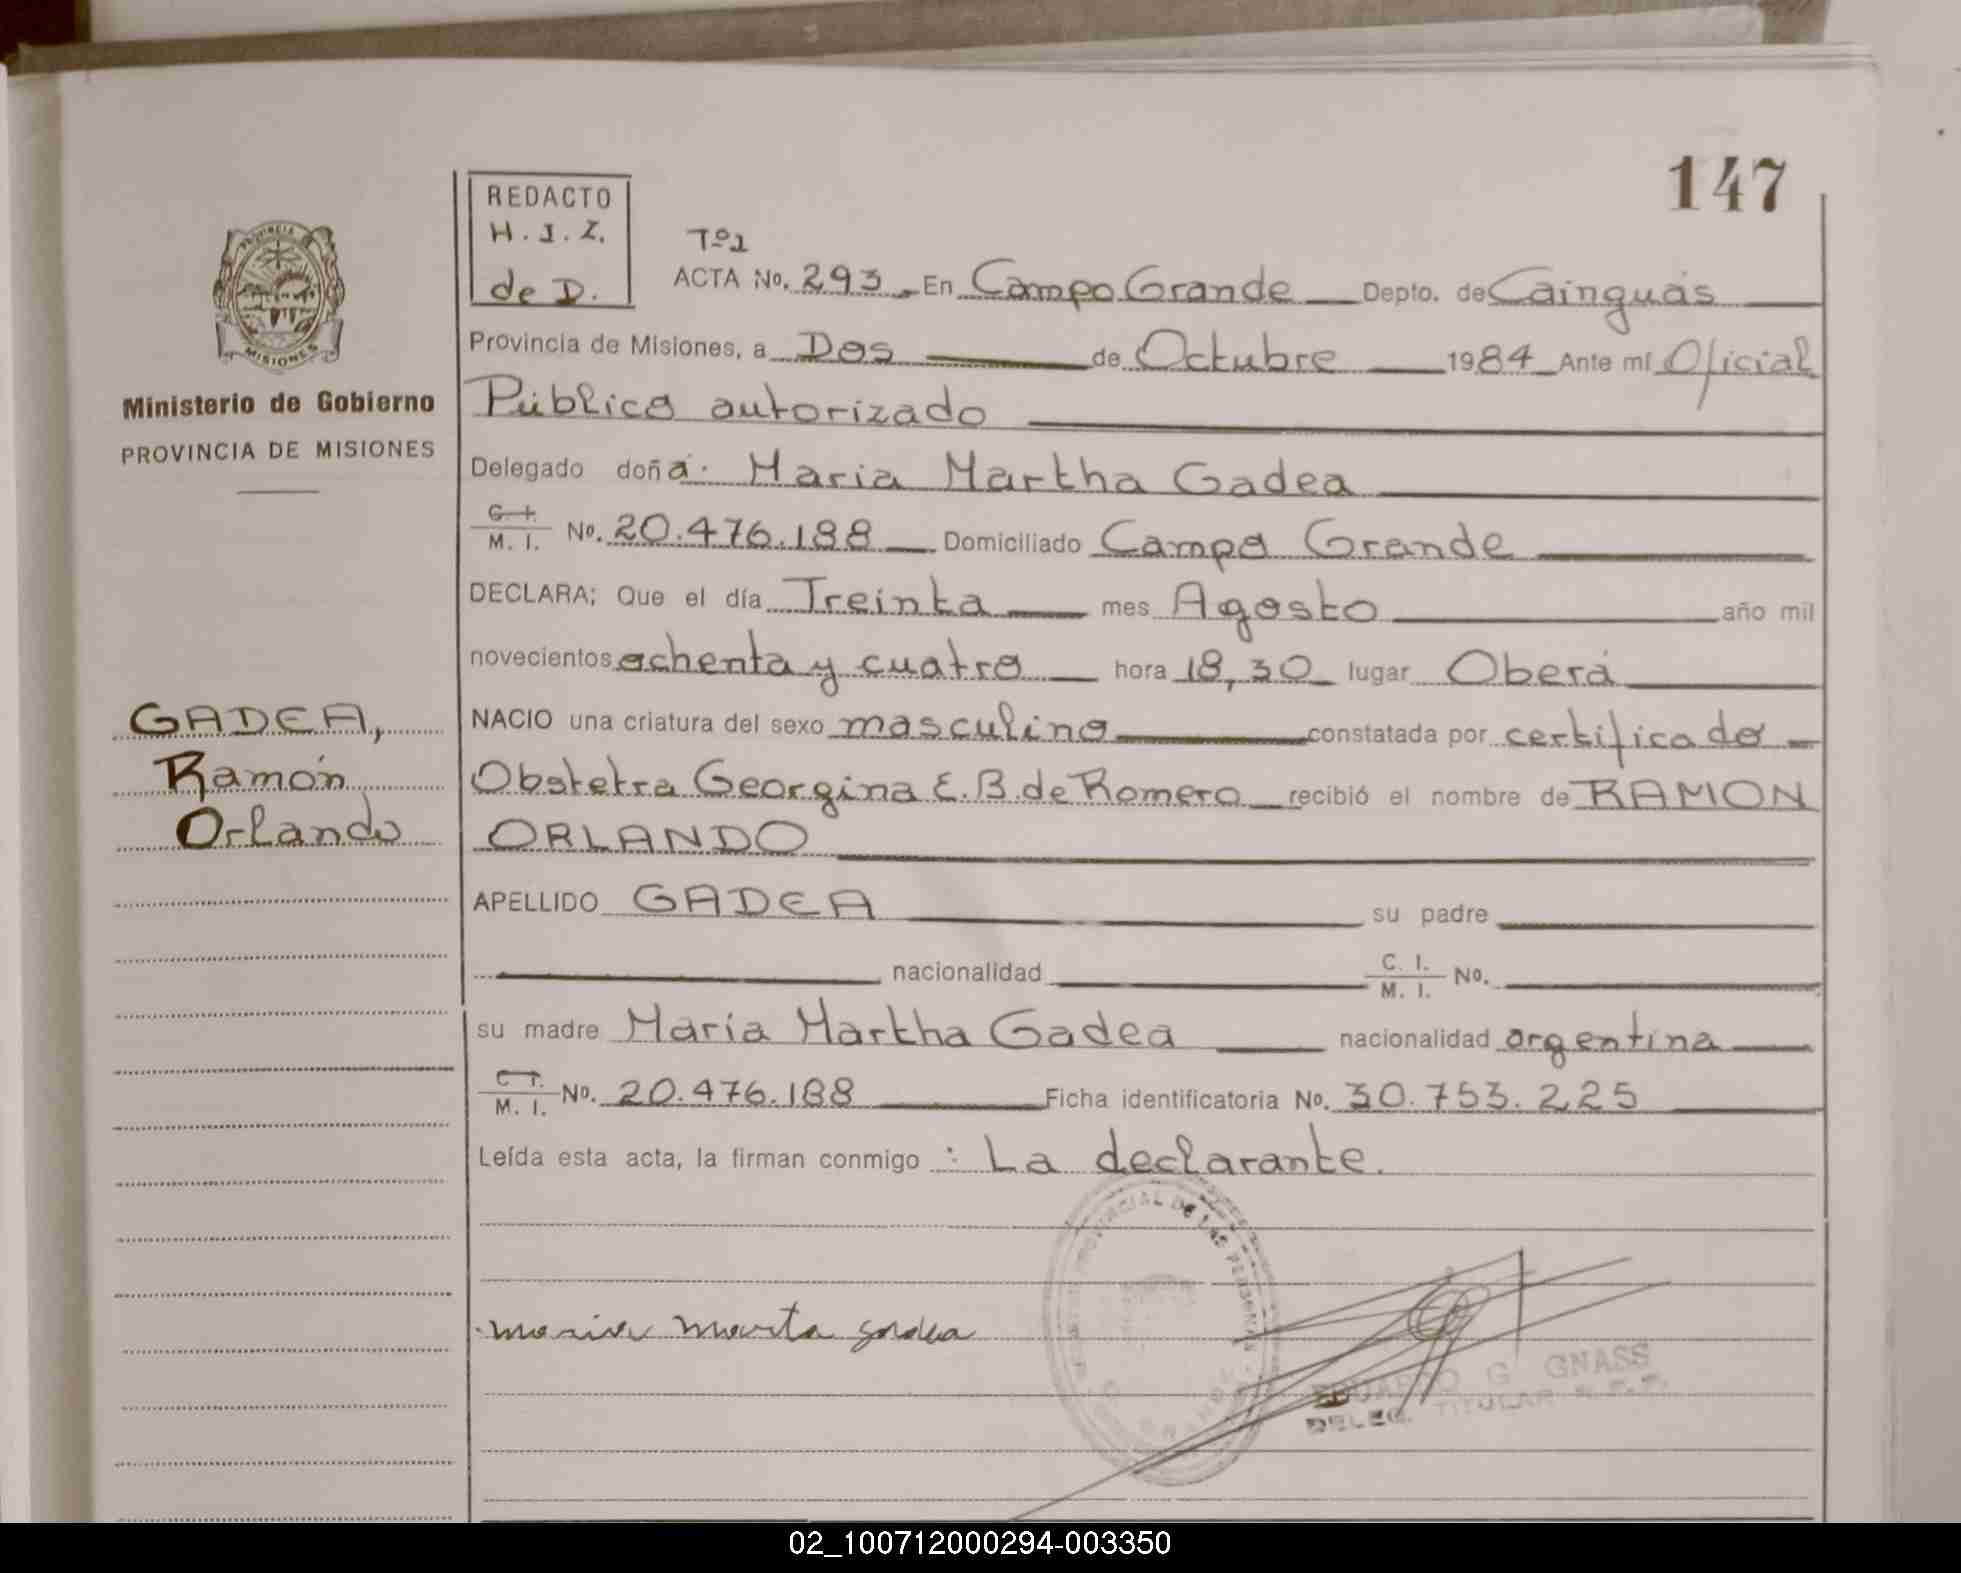 147
REDACTO
H.I.Z.
de D.
Tº1
ACTA No. 293 En Campo Grande Depto. de Cainguás
Provincia de Misiones, a Dos de Octubre 1984 Ante mí Oficial
Público autorizado
Delegado doña. Maria Martha Gadea
C. I. M. I. No. 20.476.188 Domiciliado Campo Grande
DECLARA; Que el día Treinta mes Agosto año mil
novecientos ochenta y cuatro hora 18,30 lugar Oberá
NACIO una criatura del sexo masculino constatada por certificado
Obstetra Georgina E. B. de Romero recibió el nombre de RAMON
ORLANDO
APELLIDO GADEA su padre
nacionalidad C. I. M. I. No.
su madre María Martha Gadea nacionalidad argentina
C. I. M. I. No. 20.476.188 Ficha identificatoria No. 30.753.225
Leída esta acta, la firman conmigo : La declarante.
PROVINCIAL DE LAS PERSONAS
maria marta gadea
EDUARDO G GNASS
DELEG. TITULAR
PROVINCIA
MISIONES
Ministerio de Gobierno
PROVINCIA DE MISIONES
GADEA,
Ramón
Orlando
02_100712000294-003350